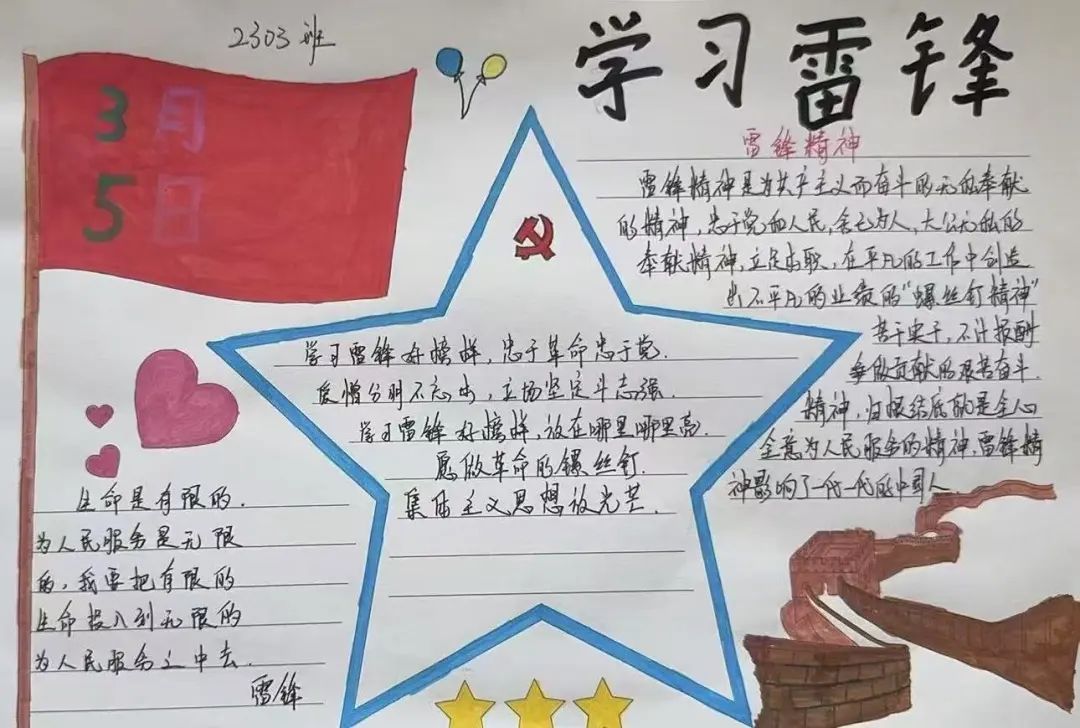 2303班
学习雷锋
3月
5日
雷锋精神
雷锋精神是为共产主义而奋斗的无私奉献
的精神,忠于党和人民,舍己为人,大公无私的
奉献精神,立足本职,在平凡的工作中创造
出不平凡的业绩的“螺丝钉精神”
苦干实干,不计报酬
争做贡献的艰苦奋斗.
精神,归根结底就是全心
全意为人民服务的精神,雷锋精
神影响了一代一代的中国人
学习雷锋好榜样,忠于革命忠于党.
爱憎分明不忘本,立场坚定斗志强.
学习雷锋好榜样,放在哪里哪里亮.
愿做革命的螺丝钉.
集体主义思想放光芒.
生命是有限的.
为人民服务是无限
的,我要把有限的
生命投入到无限的
为人民服务之中去.
雷锋